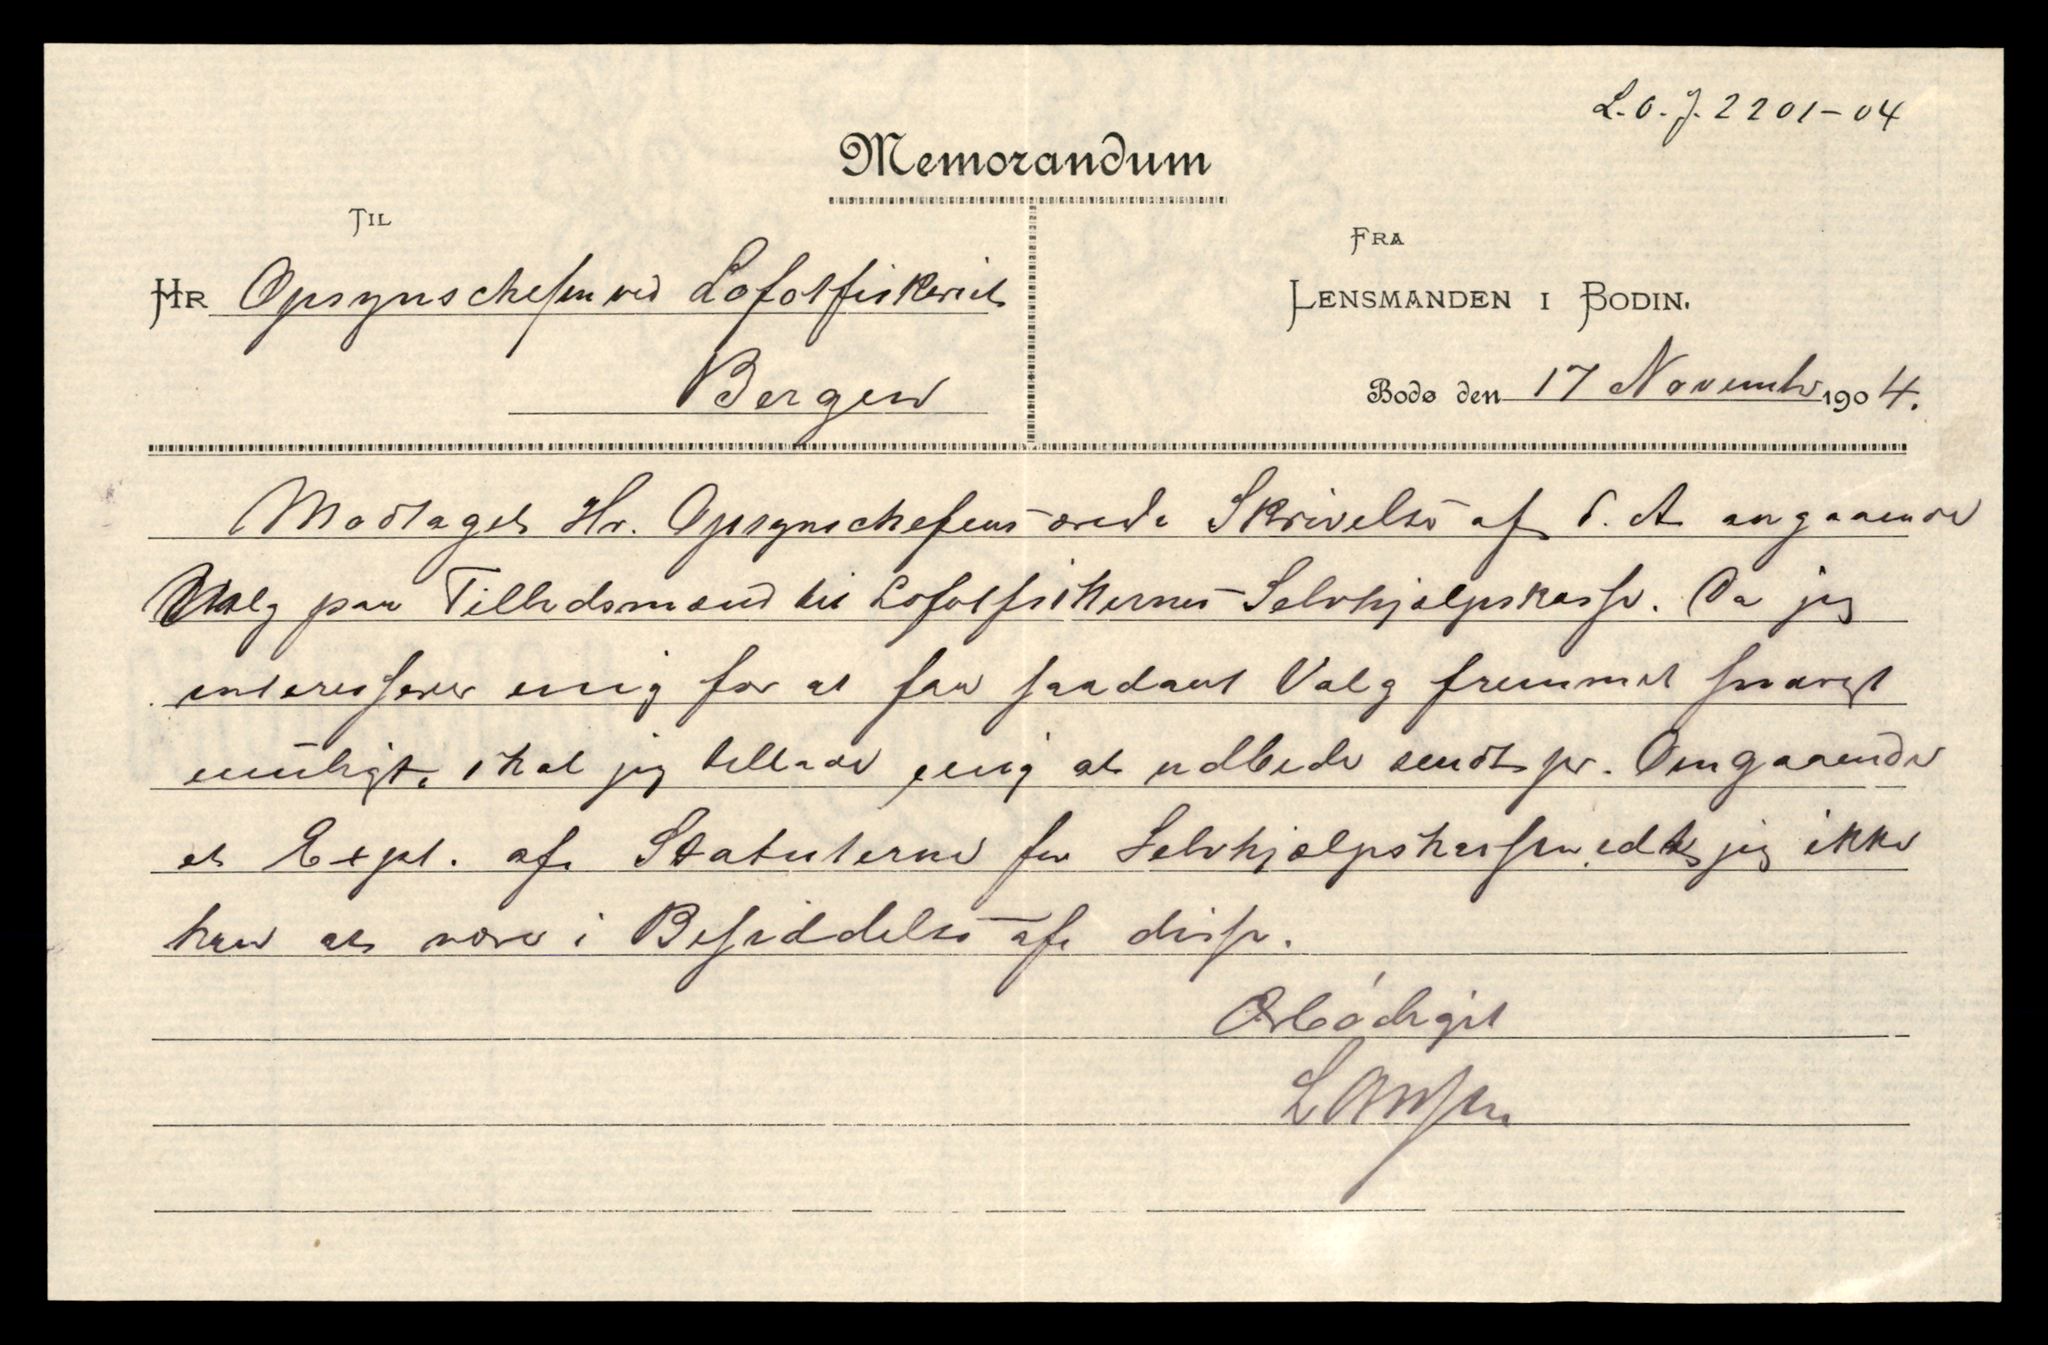 L. O. J. 2201-04
Memorandum
TIL
HR Opsynschefen ved Lofotfiskeriet
Bergen
FRA
LENSMANDEN I BODIN.
Bodø den 17 November 1904.
Modtaget Hr. Opsynschefens ærede Skrivelse af d. A angaaende
Valg paa Tillidsmænd til Lofotfiskernes Selvhjælpskasse. Da jeg
interesserer mig for at faa saadant Valg fremmet snarest
muligt, skal jeg tillade mig at udbede sendt pr. Omgaaende
et Expl. af Statuterne for Selvhjælpskassen, jeg ikke
kan at være i Besiddelse af disse.
Ærbødigst